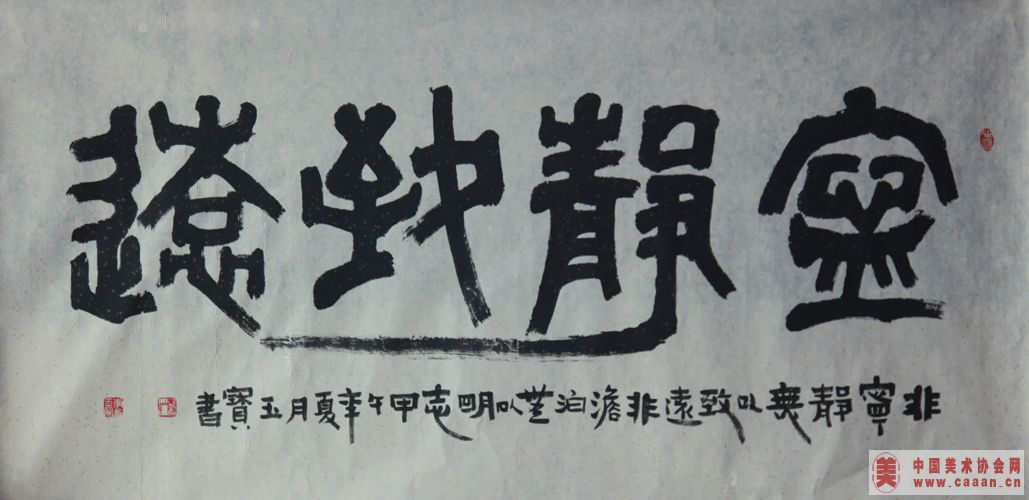 寧靜致遠
非寧靜無以致遠非澹泊無以明志甲午年夏月玉寶書
美 中国美术协会网
www.caaan.cn